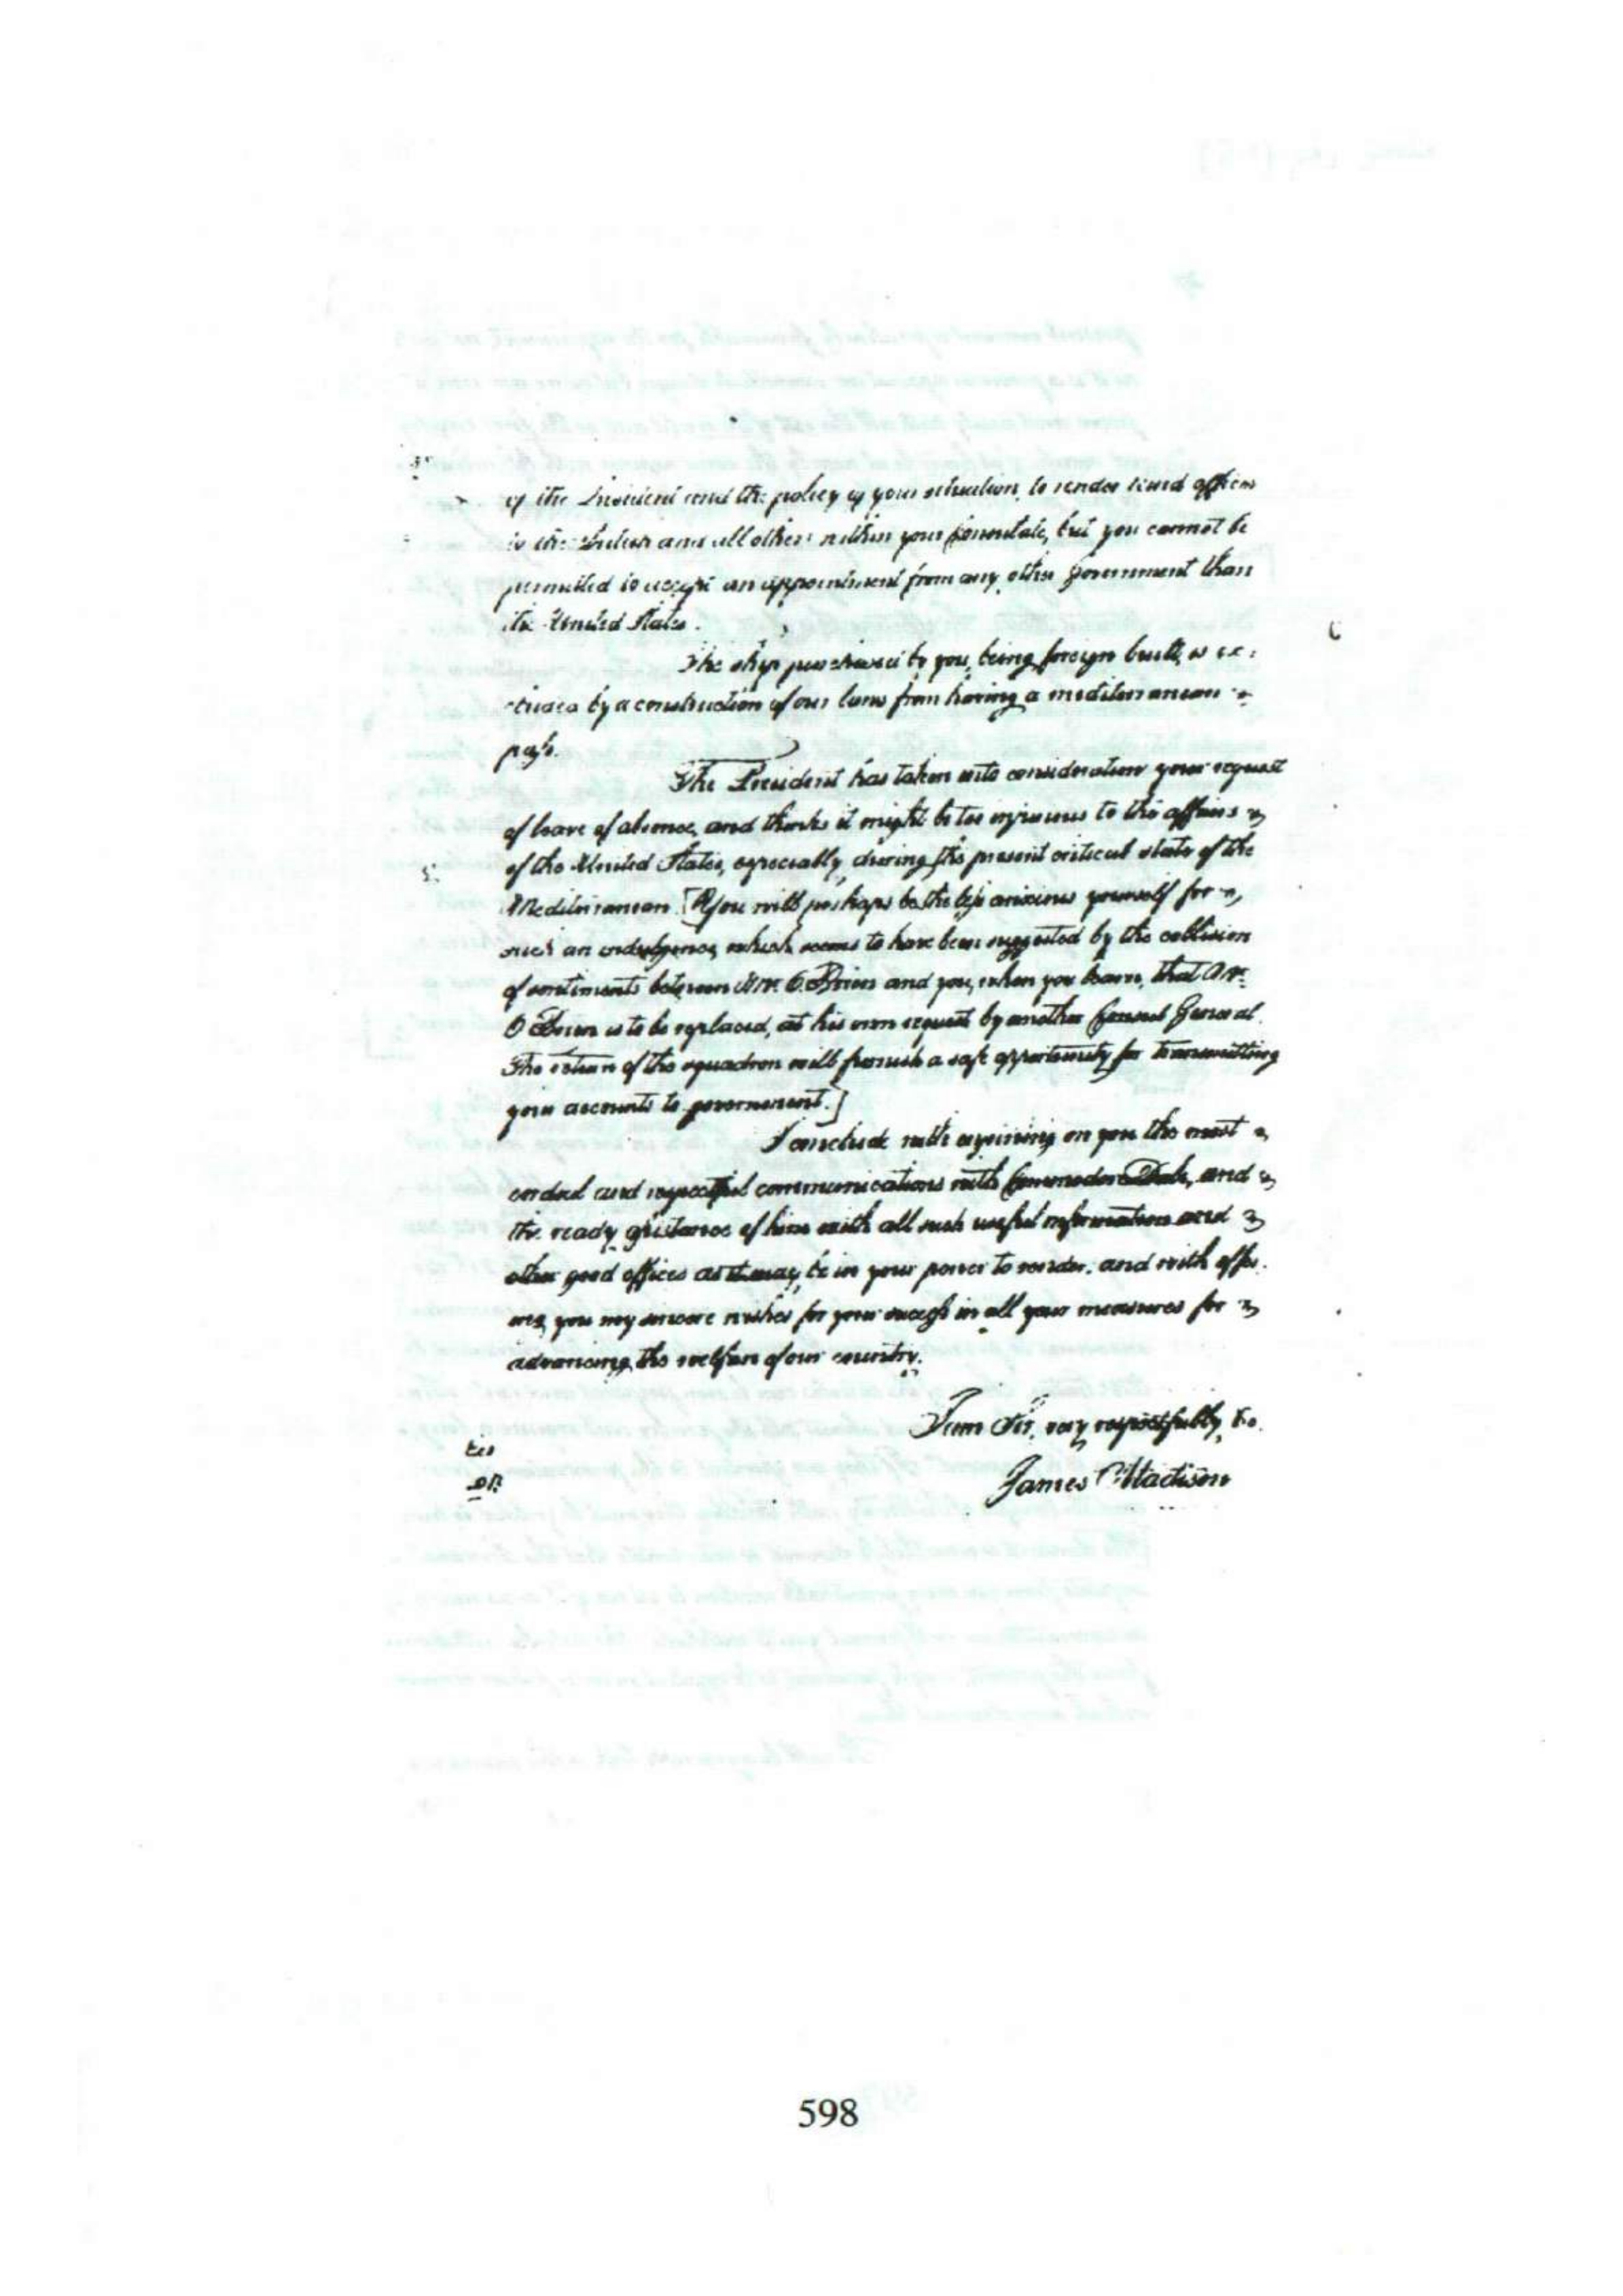 of the President and the policy of your situation, to render kind offices
to the and all others within your Consulate, but you cannot be
permitted to accept an appointment from any other Government than
the United States.
The ship purchased by you, being foreign built, is ex:
cluded by a construction of our laws from having a mediterranean
pass.
The President has taken into consideration your request
of leave of absence, and thinks it might be too injurious to the affairs
of the United States, especially, during the present critical state of the
Mediterranean. [You will perhaps be the less anxious yourself for
such an indulgence, which seems to have been suggested by the collision
of sentiments between Mr. O.Brien and you, when you learn, that Mr.
O Brien is to be replaced, at his own request by another Consul General.
The return of the squadron will furnish a safe opportunity for transmitting
your accounts to government.]
I conclude with enjoining on you the most
cordial and respectful communications with Commodore Dale, and
the ready assistance of him with all such useful information and
other good offices as it may be in your power to render, and with offer.
ing you my sincere wishes for your success in all your measures for
advancing the welfare of our country.
I am Sir, very respectfully, &c.
James Madison
598